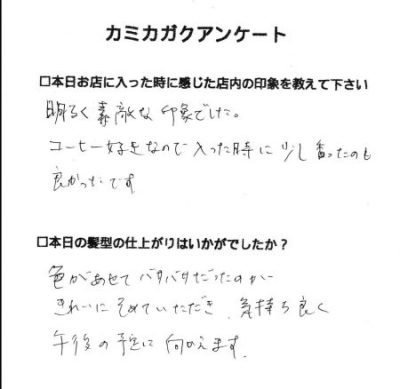 カミカガクアンケート
□本日お店に入った時に感じた店内の印象を教えて下さい
明るく素敵な印象でした。
コーヒー好きなので入った時に少し香ったのも
良かったです
□本日の髪型の仕上がりはいかがでしたか？
色があせてバサバサだったのが
きれいにそめていただき、気持ち良く
午後の予定に向かえます。